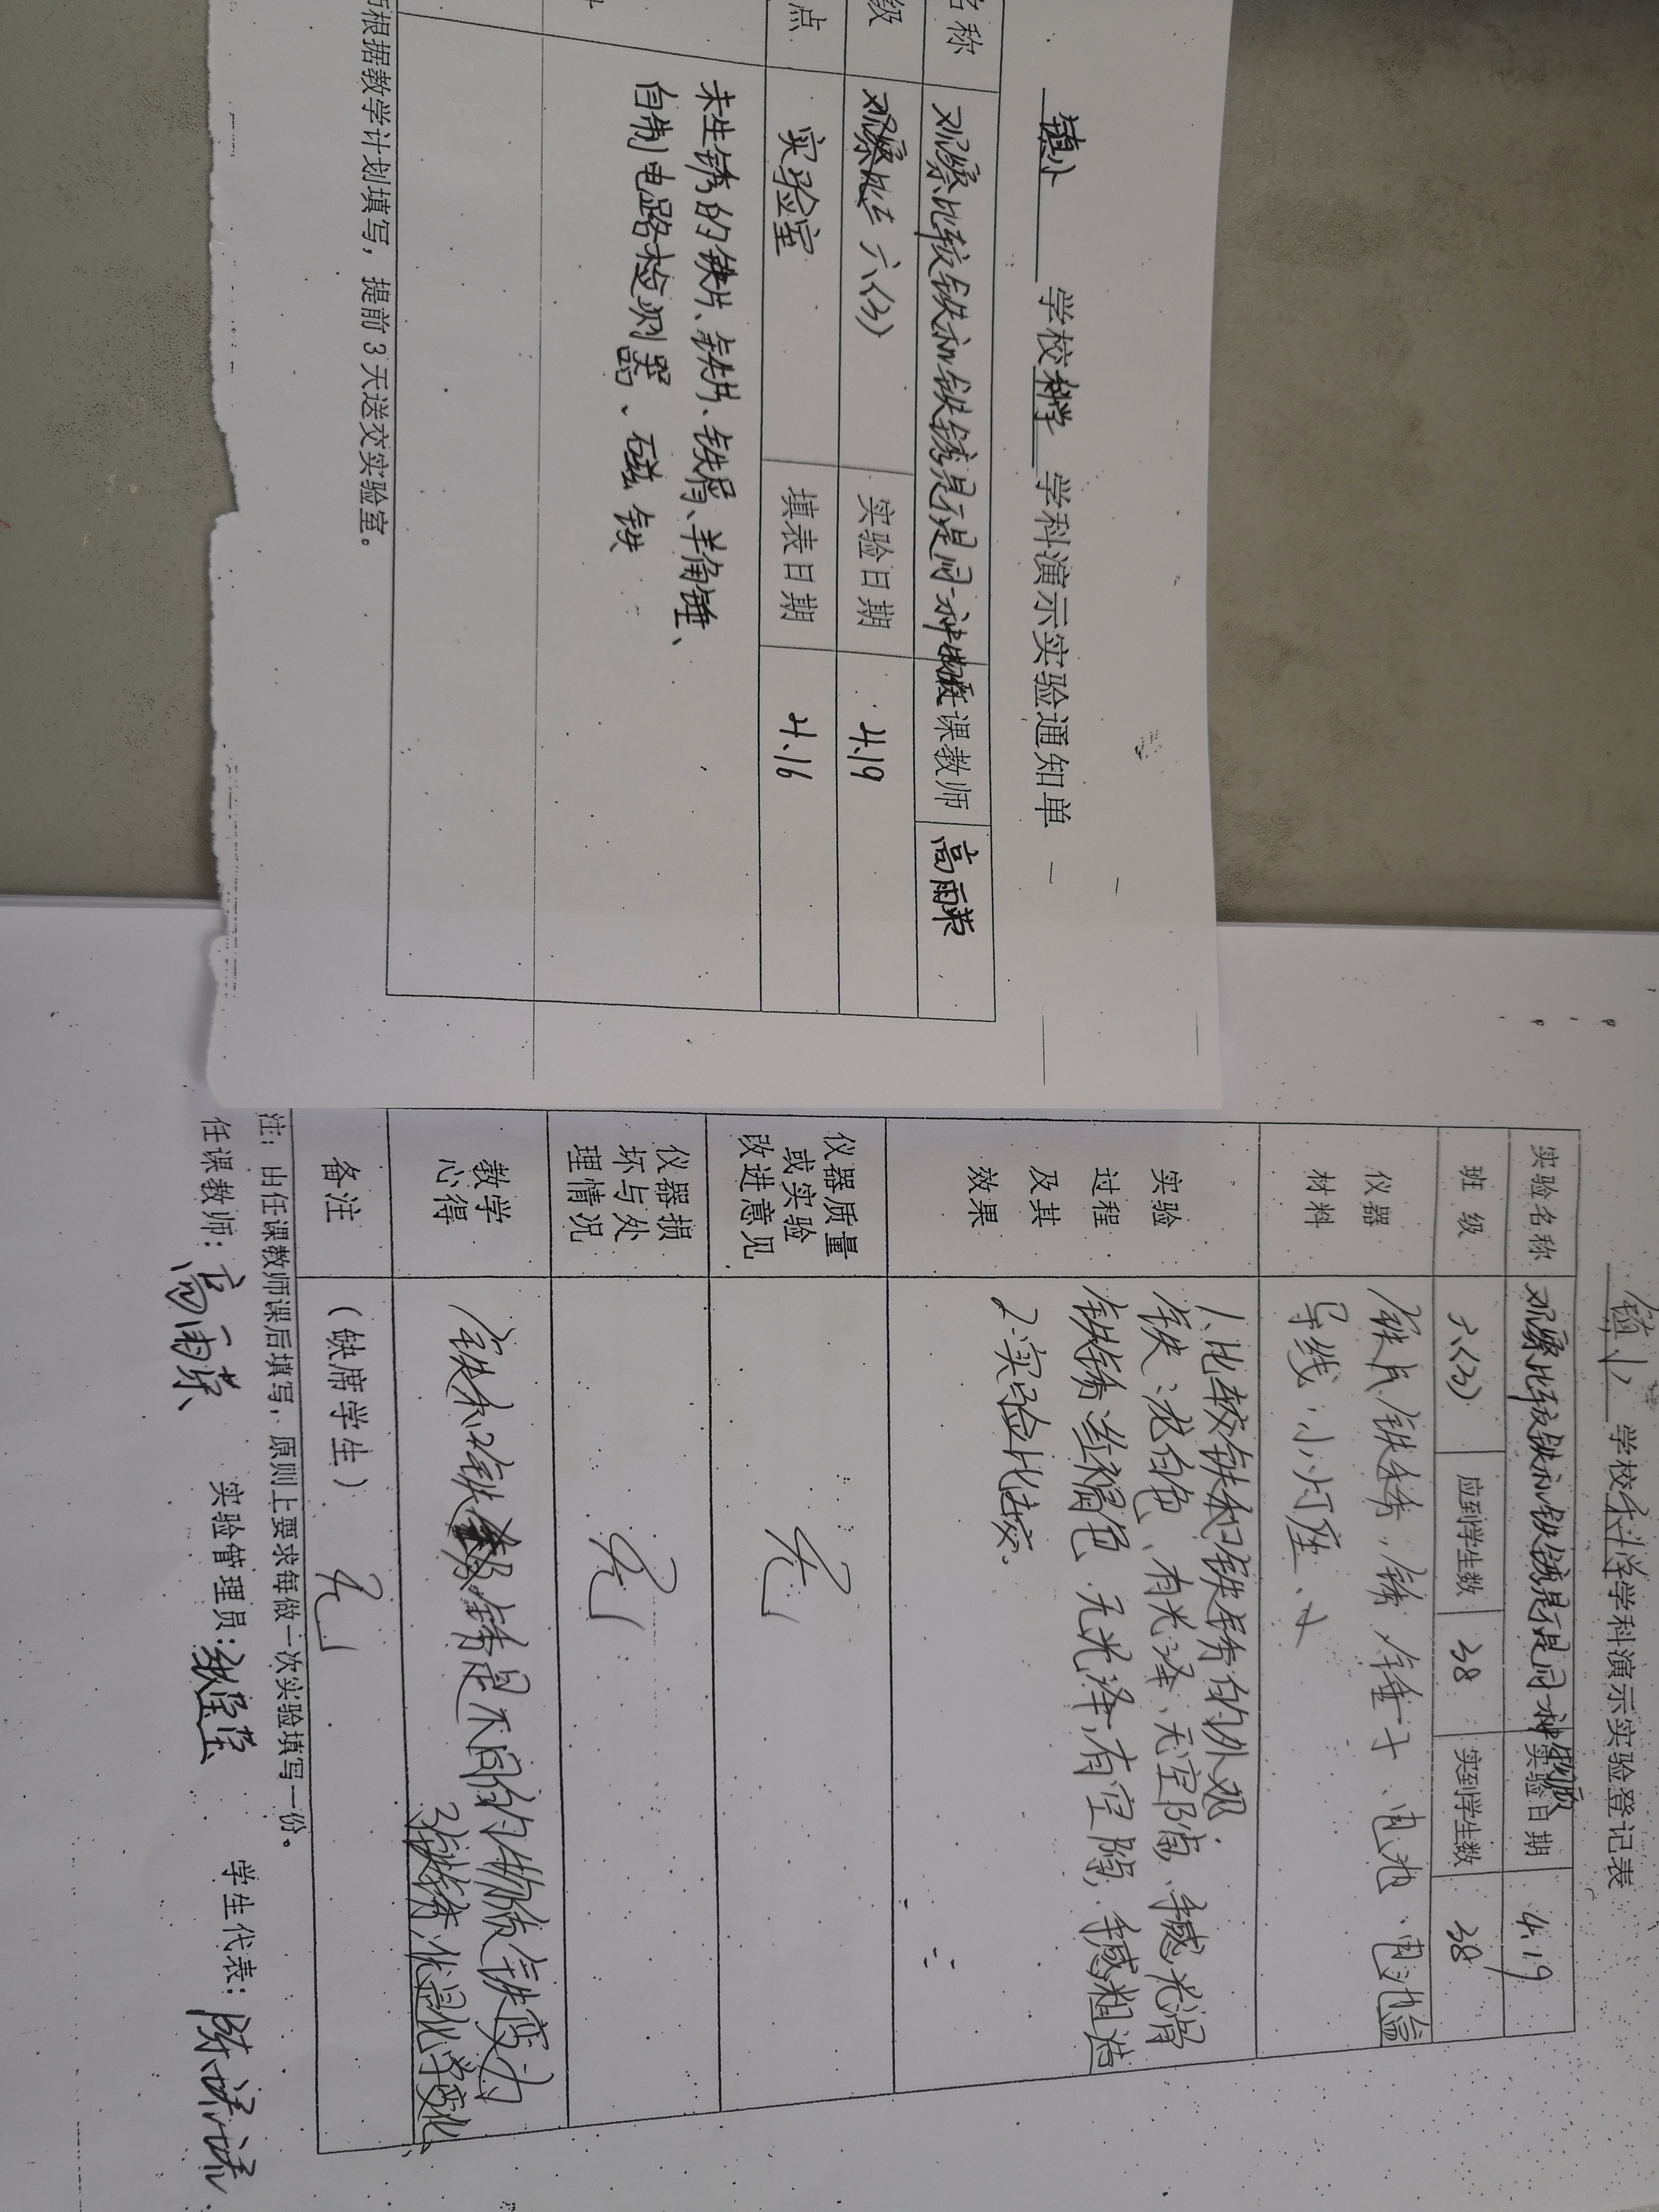 镇小 学校科学 学科演示实验通知单
名称 观察比较铁和铁锈是不是同一种物质 任课教师 高雨荣
级 六(3) 实验日期 4.19
点 实验室 填表日期 4.16
未生锈的铁片、铁片、铁屑、羊角锤、
自制电路检测器、磁铁
根据教学计划填写，提前3天送交实验室。
镇小 学校科学学科演示实验登记表
实验名称 观察比较铁和铁锈是不是同一种物质 实验日期 4.19
班级 六(3) 应到学生数 38 实到学生数 38
仪器材料
铁片、铁锈、锤子、电池、电池盒
导线、小灯座、
实验过程及其效果
1.比较铁和铁锈的外观.
铁:银白色、有光泽、无空隙、手感光滑
铁锈:红褐色、无光泽、有空隙、手感粗造
2.实验比较.
仪器质量或实验改进意见 无
仪器损坏与处理情况 无
教学心得
铁和铁锈是不同的物质,铁变为
铁锈是化学变化
备注 （缺席学生） 无
注：由任课教师课后填写，原则上要求每做一次实验填写一份。
任课教师：高雨荣 实验管理员： 学生代表：陈诺诺